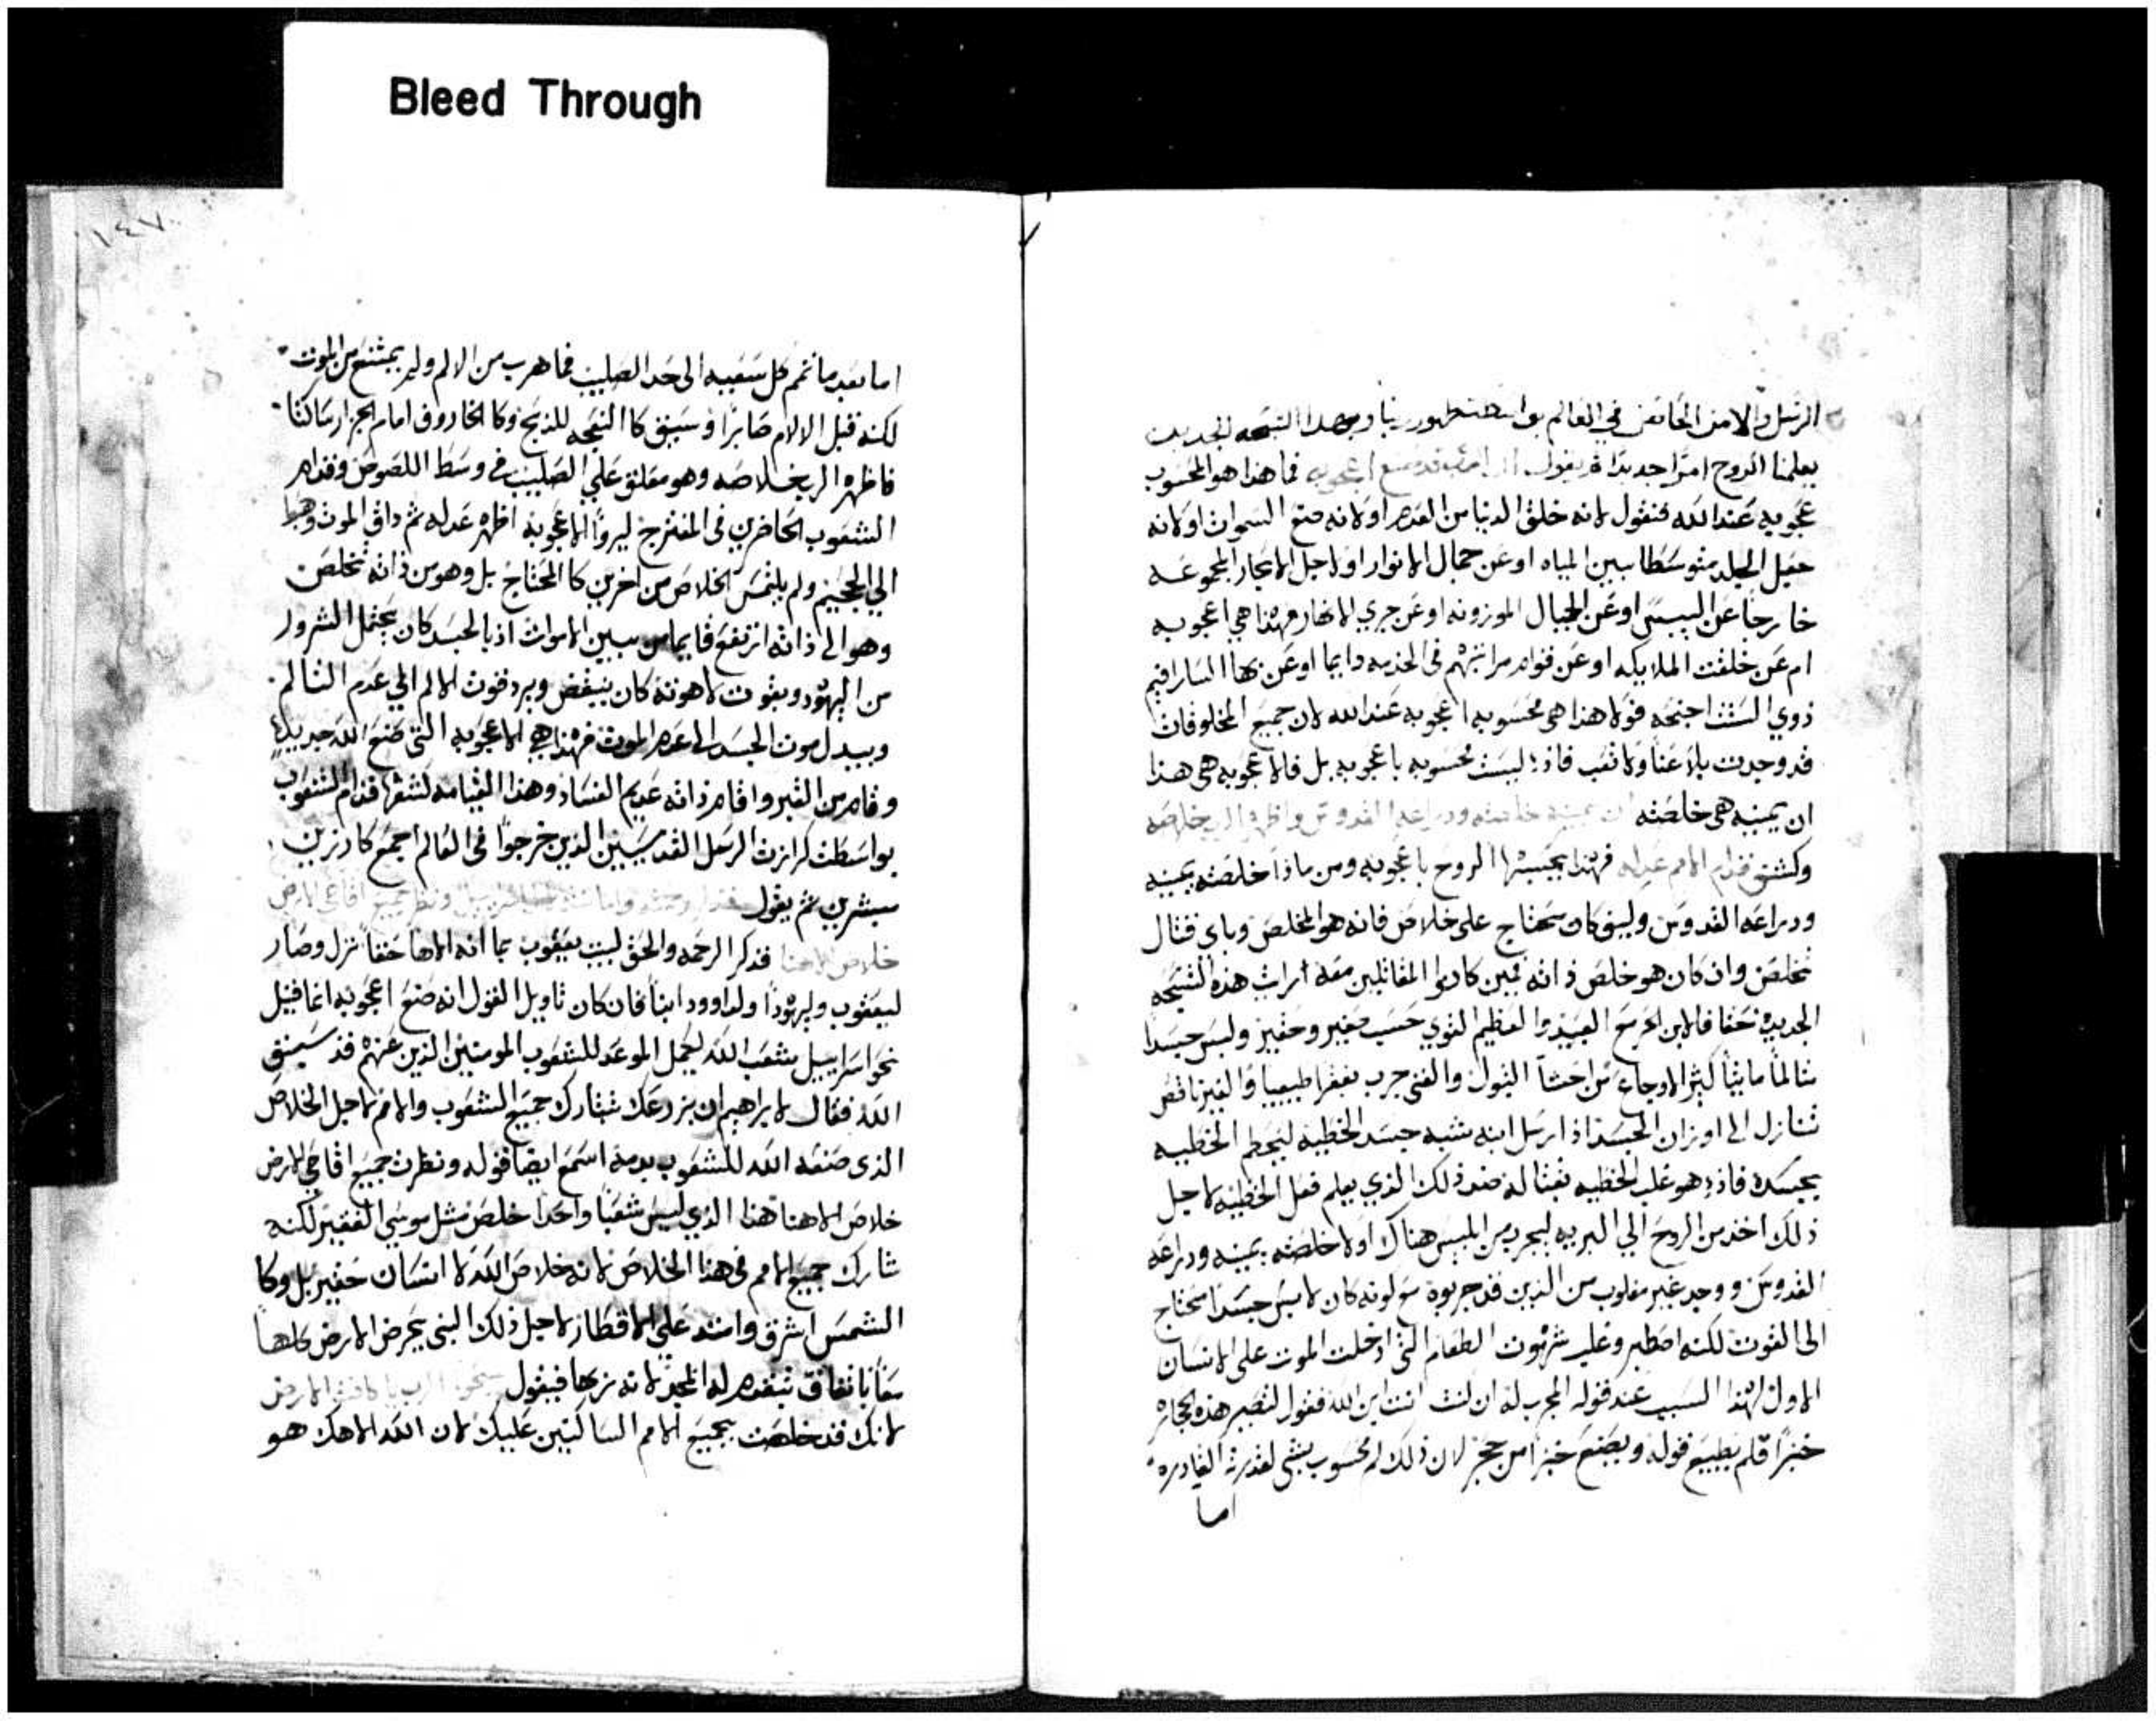 Bleed Through
الرسل والامن الخايض في العالم بواسطت ظهور ربنا وبهذا التسبحه الجديده
يعلمنا الروح امرًا جديدًا فيقول فما هذا هو المحسوب
عجوبه عند الله فنقول لانه خلق الدنيا من العدم او لانه صنع السموات او لانه
جعل الجلد متوسطا بين المياه او عن جمال الانوار او لاجل الابحار المجموعه
خارجًا عن اليبس او عن الجبال الموزونه او عن جري الانهار فهذا هي اعجوبه
ام عن خلقت الملايكه او عن قوام مراتبهم في الخدمه دايما او عن بها السارافيم
ذوي الستت اجنحه فولا هذا هي محسوبه اعجوبه عند الله لان جميع المخلوقات
قد وجدت بلا عنا ولا تعب فاذ ليست محسوبه باعجوبه بل فالاعجوبه هي هذا
ان يمينه هي خلصته ان يمينه خلصته ودراعه القدوس واظهر الرب خلاصه
وكشف قدام الامم عدله فهذا يحسبها الروح باعجوبه ومن ماذا خلصته يمينه
ودراعه القدوس وليس كان محتاج على خلاص فانه هو المخلص وباي قتال
تخلص وان كان هو خلص ذاته فمن كانوا المقاتلين معه اراث هذه التسبحه
الجديده حقا فالابن الغير والعظيم القوي حسب صغير وحقير ولبس جسدا
تالما مايتًا كثير الاوجاع من احشا البتول والغني جرب بفقر طبيعيا والغير ناقص
تنازل الى اوزان الجسد اذ ارسل ابنه بشبه جسد الخطيه ليحطم الخطيه
بجسده فاذ هو غلب الخطيه بقتاله ضد ذلك الذي يعلم فعل الخطيه لاجل
ذلك اخذ من الروح الي البريه ليجرب من ابليس هناك اولا خلصته يمينه ودراعه
القدوس ووجد غير مغلوب من الذين قد جربوه مع كونه كان لابس جسدا محتاج
الى القوت لكنه اصطبر وغلب شهوت الطعام التي ادخلت الموت على الانسان
الاول لهذا السبب عند قوله المجرب له ان كنت انت ابن الله فقول لتصير هذه الحجاره
خبزًا فلم يطيع قوله ويصنع خبزا من حجر لان ذلك لم محسوب بشي لقدرته القادره
اما
١٤٧
اما بعد ما تمم كل سعيه الى حد الصليب فما هرب من الالم ولم يمتنع من الموت
لكنه قبل الالام صابرًا وسيق كالنعجه للذبح وكالخاروف امام الجزار ساكتا
فاظهر الرب خلاصه وهو معلق علي الصليب في وسط اللصوص وقدام
الشعوب الحاضرين في المتفرج ليروا الاعجوبه اظهر عدله ثم داق الموت وهبط
الي الجحيم ولم يلتمس الخلاص من اخرين كالمحتاج بل وهو من ذاته تخلص
وهو الى ذاته ارتفع قايما من بين الاموات اذ بالجسد كان يحتمل الشرور
من اليهود وبقوت لاهوته كان ينقض ويرد قوت الالم الي عدم التالم
ويبدل موت الجسد الى عدم الموت فهذا هي الاعجوبه التي صنع الله جديدًا
وقام من القبر واقام ذاته عديم الفساد وهذا القيامه كشفها قدام الشعوب
بواسطت كرازت الرسل القديسين الذين خرجوا في العالم اجمع كارزين
مبشرين ثم يقول فذكر رحمته وامانته لبيت اسراييل ونظر جميع اقاصي الارض
خلاص الاهنا فذكر الرحمه والحق لبيت يعقوب بما انه الاها حقا نزل وصار
ليعقوب وليهودا ولداوود ابنا فان كان تاويل القول انه صنع اعجوبه انما قيل
نحو اسراييل شعب الله لحمل الموعد للشعوب المومنين الذين عنهم قد سبق
الله فقال لابراهيم ان بزرعك تتبارك جميع الشعوب والامم لاجل الخلاص
الذي صنعه الله للشعوب بدمه اسمع ايضا قوله ونظرت جميع اقاصي الارض
خلاص الاهنا هذا الذي ليس شعبًا واحدًا خلص مثل موسي الفقير لكنه
شارك جميع الامم في هذا الخلاص لانه خلاص الله لا انسان حقير بل وكا
الشمس اشرق وامتد علي الاقطار لاجل ذلك النبي يحرض الارض كلها
معًا باتفاق تتقدم له المجد لانه ربها فيقول سبحوا الرب يا كافت الارض
لانك قد خلصت بجميع الامم الساكنين عليك لان الله الاهك هو